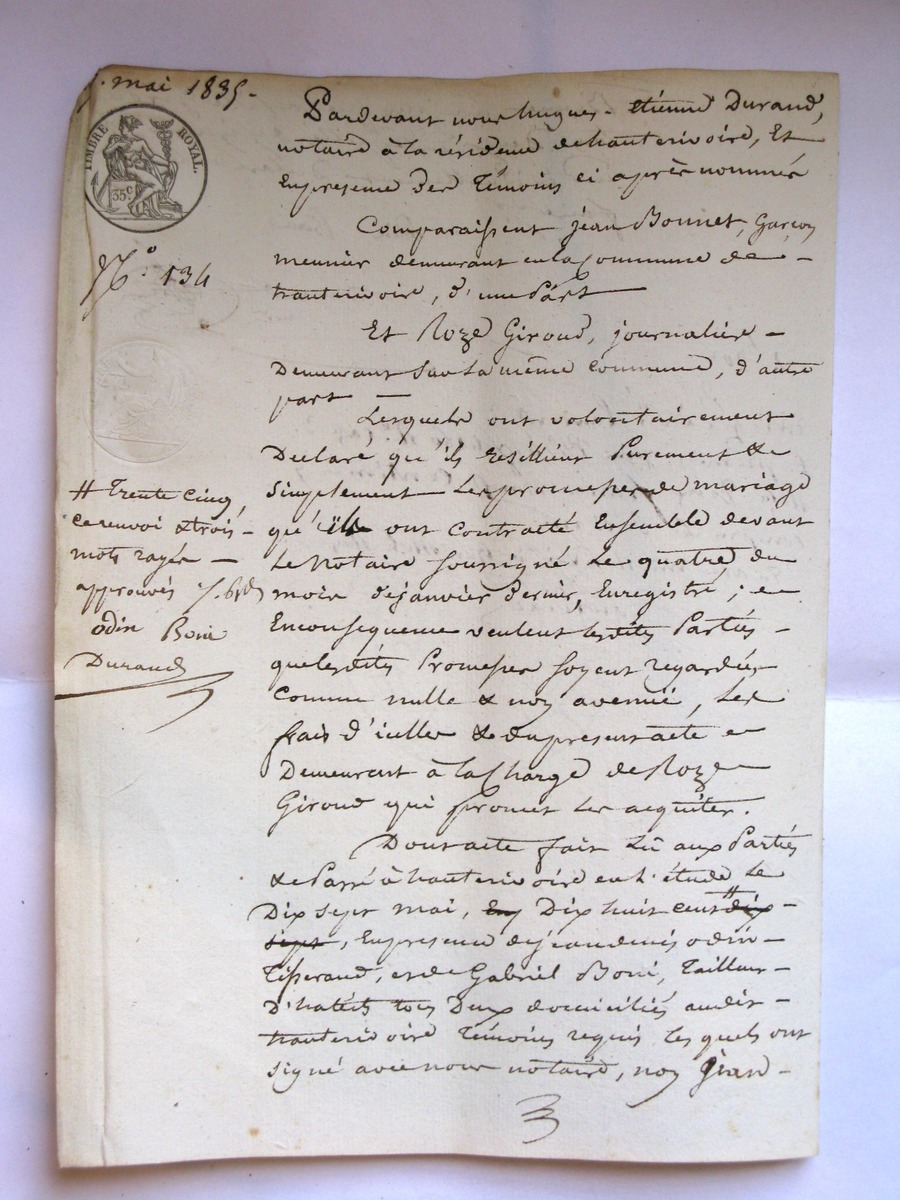 mai 1835 -
TIMBRE ROYAL.
35 c
N.º 134
Pardevant nous hugues - etienne Durand,
notaire à la résidence dehauterivoire, Et
Enpresence Des Témoins ci après nommés
Comparaissent jean Bonnet, Garçon
meunier demeurant enla Commune de -
hauterivoire, d'une Part
Et Roze Giroud, journaliere -
Demeurant Sur La même Commune, d'autre
part —
Lesquels ont volontairement
Déclaré qu'ils résilient Purement &
Simplement Les promesses de mariage
qu'ils ont Contracté Ensemble devant
Le Notaire Soussigné Le quatre du
mois dejanvier dernier, Enregistré ;
Enconsequence veulent Lesdites Parties -
quelesdites Promesses Soyent regardées
Comme nulle & non avenue, Les
frais d'icelles & duprésent acte
Demeurant à la Charge de Roze
Giroud qui promet Les acquiter.
Dont acte fait Lû aux Parties
& Passé à hauterivoire en L'étude Le
Dix Sept mai, En Dix huit cent # dix -
sept, Enpresence dejeandenis odin -
Tisserand, et de Gabriel Boni, Tailleur -
D'habits tous Deux domiciliés audit -
hauterivoire Témoins requis Les quels ont
Signé avec nous notaire, non Jean -
# Trente Cinq
ce renvoi & trois -
mots rayés —
approuvés
odin Boni
Durand